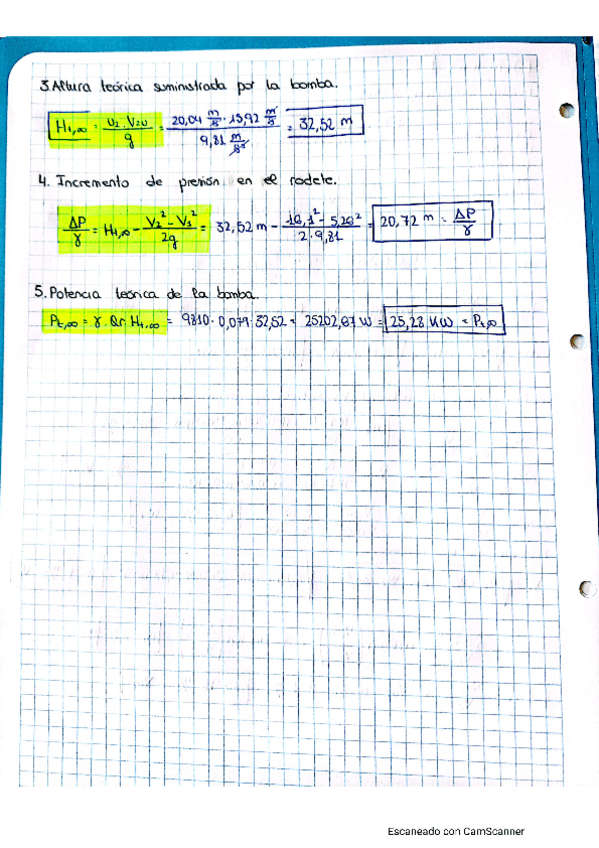 3. Altura teórica suministrada por la bomba.
Ht,∞ = U2 · V2u / g = 20,04 m/s · 15,92 m/s / 9,81 m/s² = 32,52 m
4. Incremento de presión en el rodete.
ΔP/γ = Ht,∞ - V2² - V1² / 2g = 32,52 m - 16,1² - 5,26² / 2 · 9,81 = 20,72 m = ΔP/γ
5. Potencia teórica de la bomba.
Pt,∞ = γ · Qr · Ht,∞ = 9810 · 0,079 · 32,52 = 25202,67 W = 25,28 KW = Pt,∞
Escaneado con CamScanner